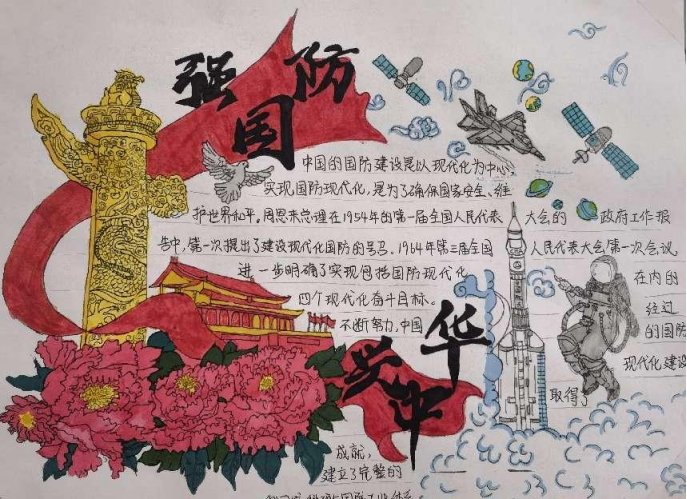 强国防
中国的国防建设是以现代化为中心。
实现国防现代化,是为了确保国家安全、维
护世界和平。周恩来总理在1954年的第一届全国人民代表大会的政府工作报
告中,第一次提出了建设现代化国防的号召。1964年第三届全国人民代表大会第一次会议
进一步明确了实现包括国防现代化在内的
四个现代化奋斗目标。经过
不断努力,中国的国防
现代化建设
取得了
兴中华
成就,
建立了完整的